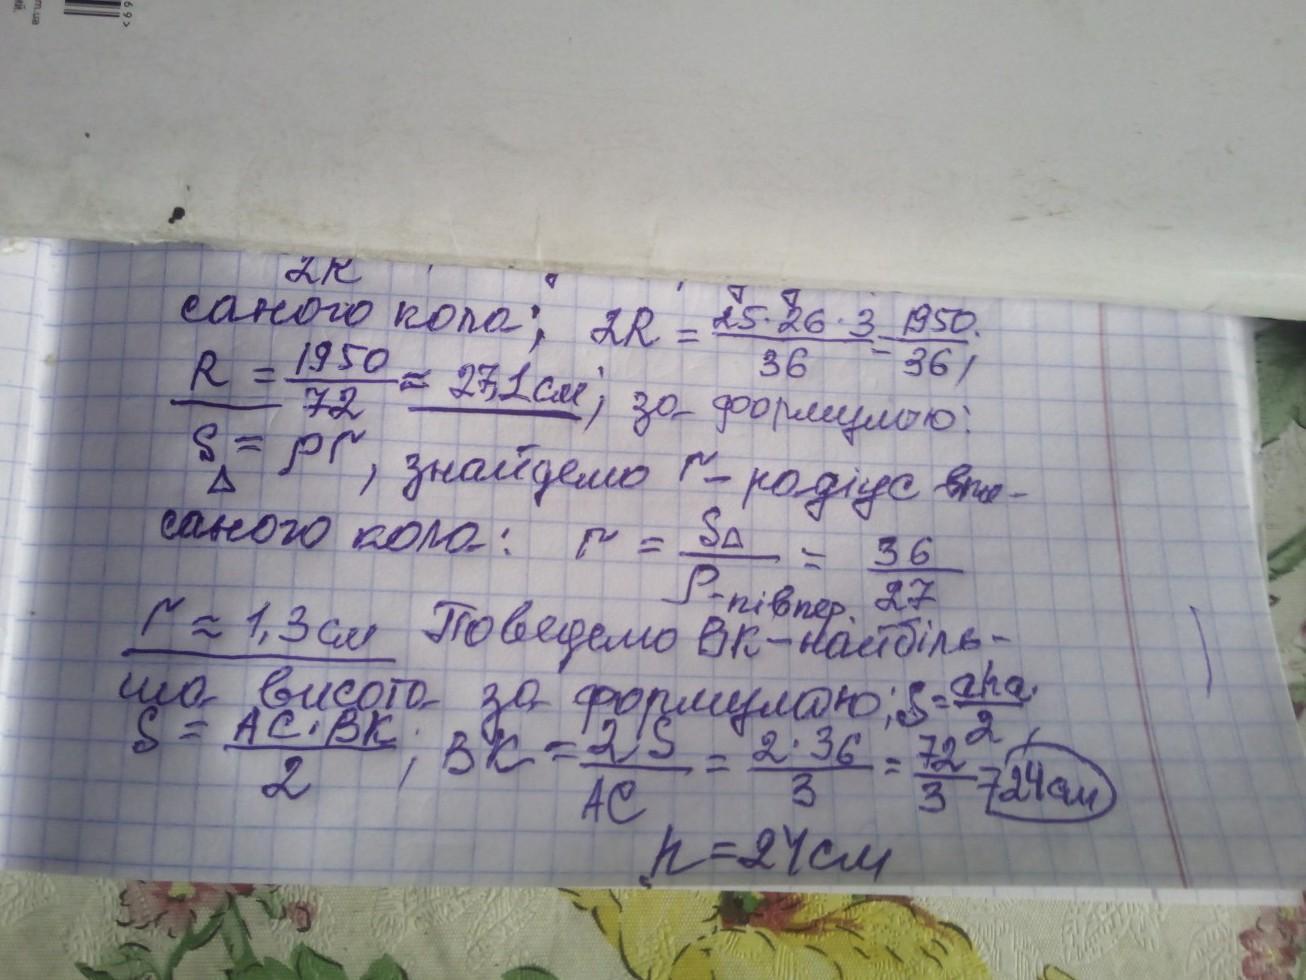 2R
саного кола; 2R = 25·26·3/36 = 1950/36;
R = 1950/72 ≈ 27,1 см; за формулою:
S△ = pr, знайдемо r – радіус впи-
саного кола: r = S△/P-півпер. = 36/27
r ≈ 1,3 см Поведемо BK – найбіль-
ша висота за формулою; S = aha/2,
S = AC·BK/2; BK = 2S/AC = 2·36/3 = 72/3 = 24 см
h = 24 см